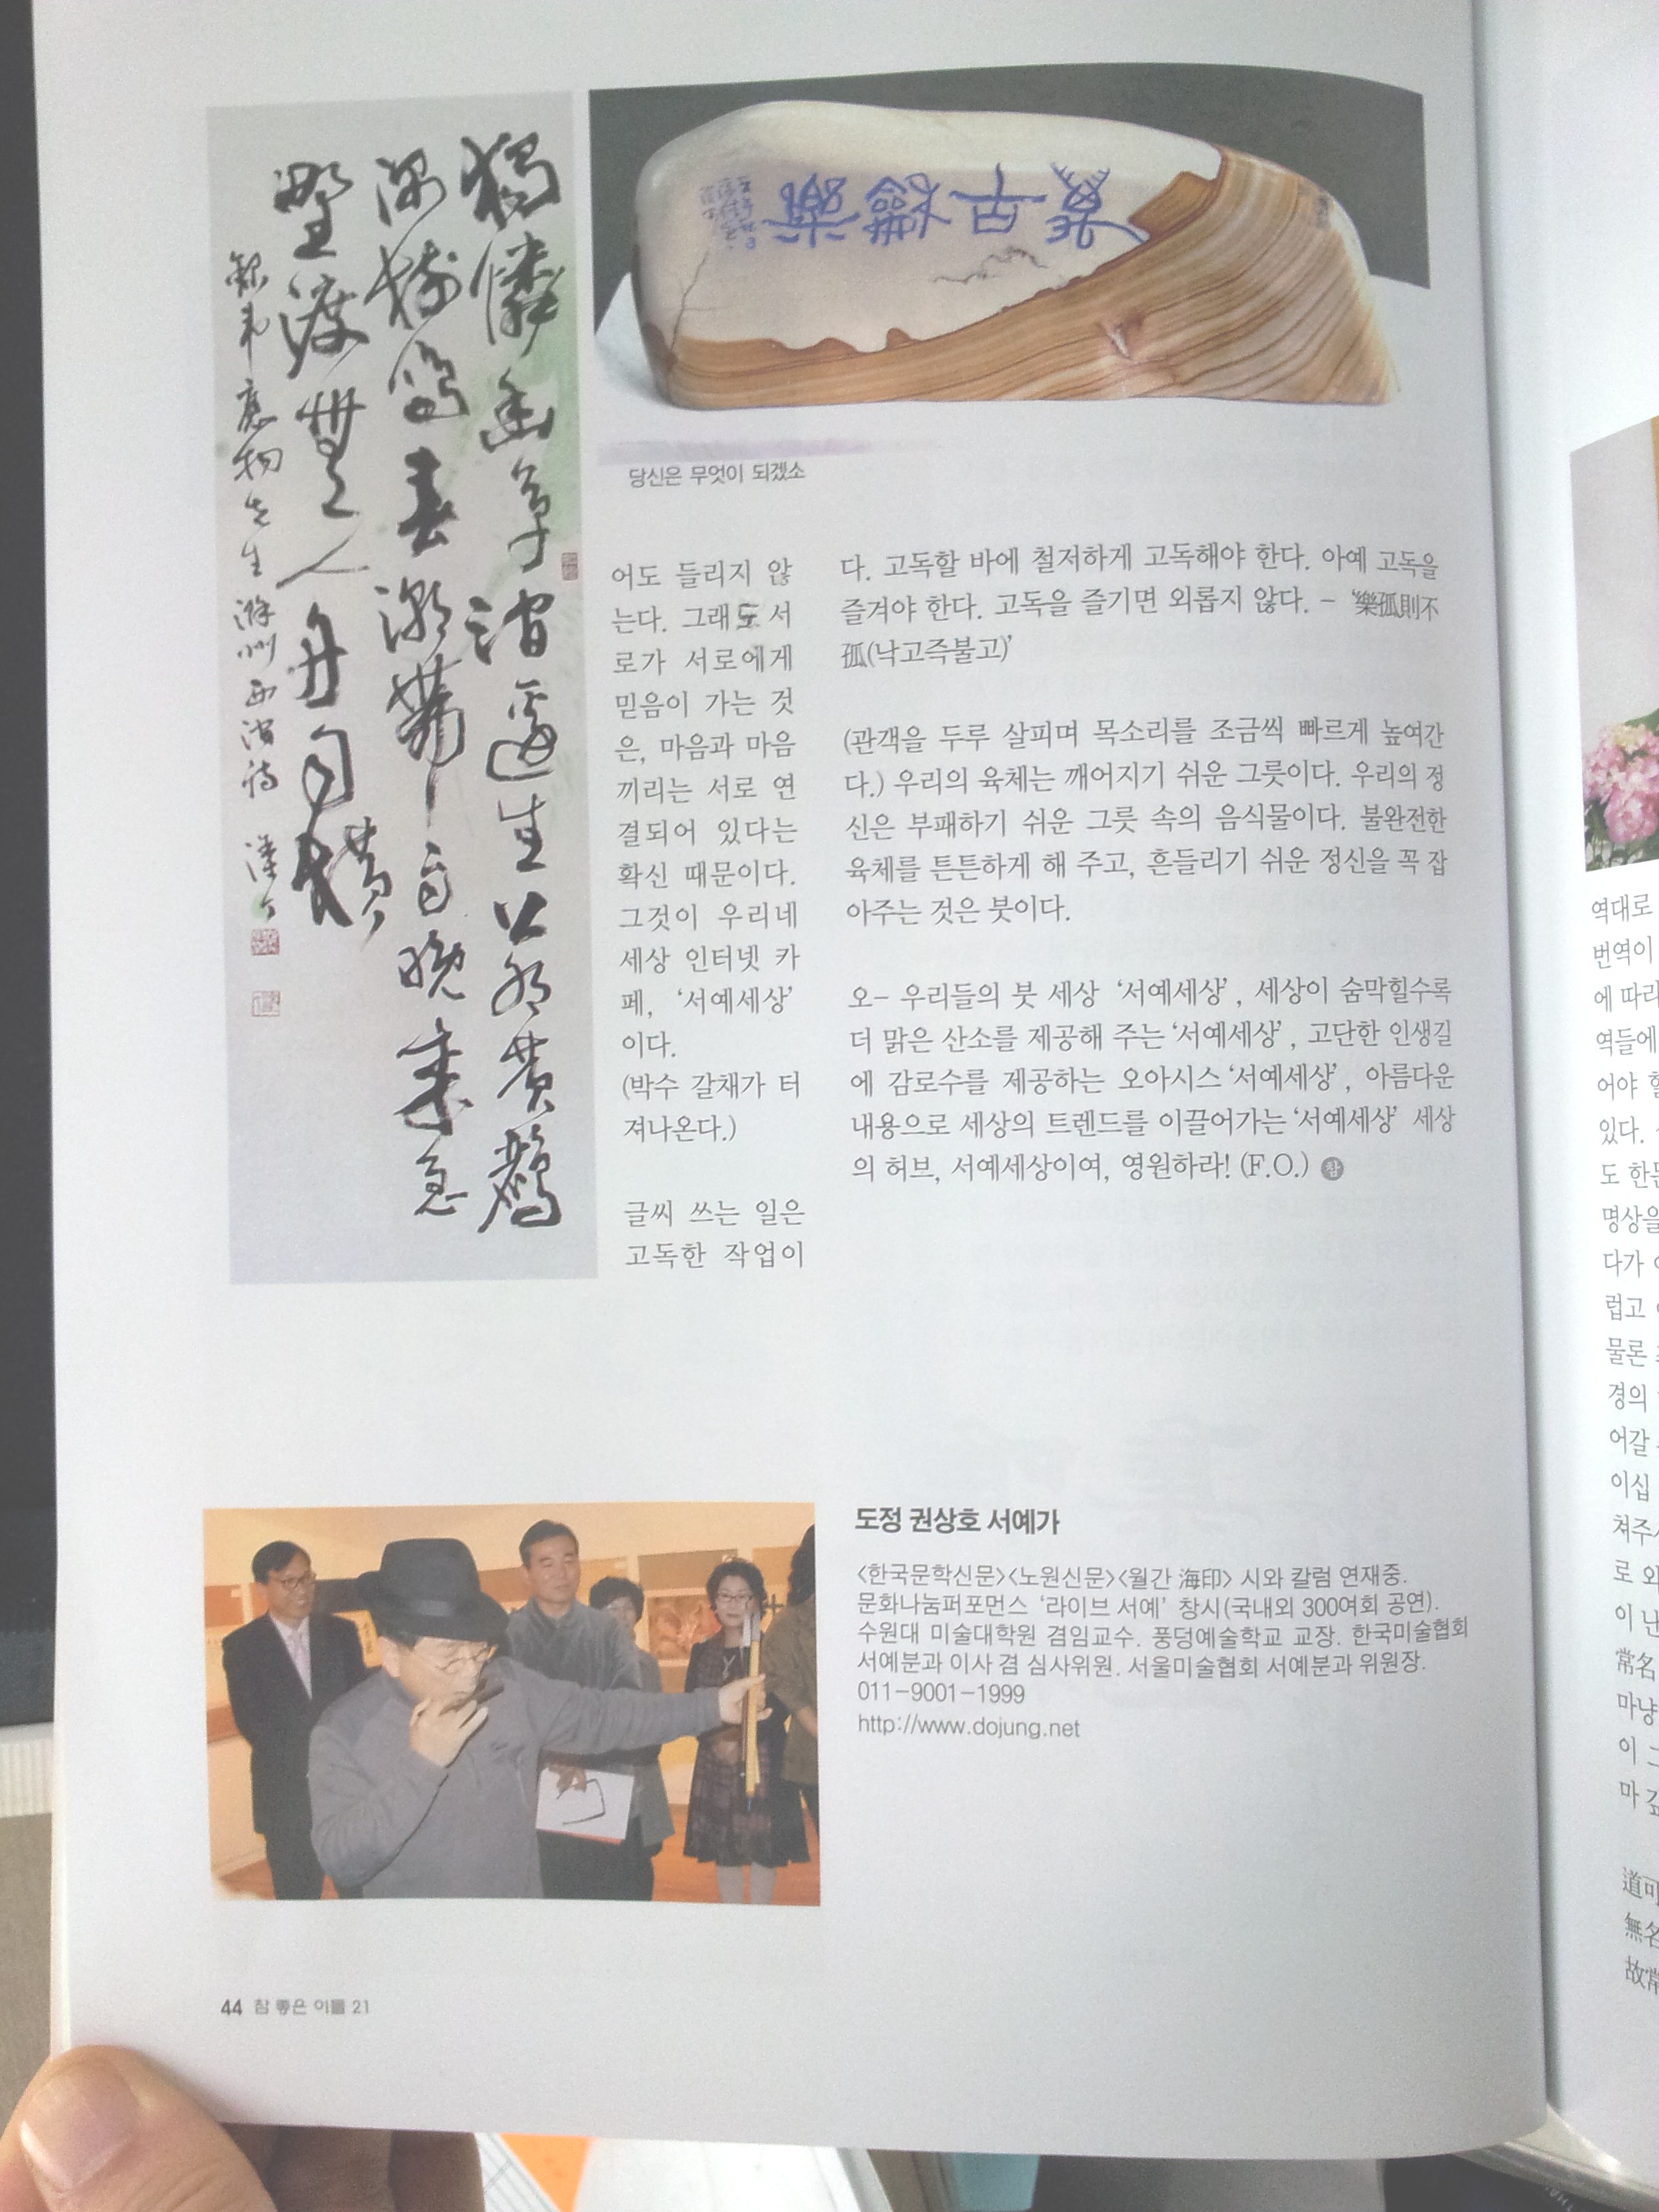 獨憐幽草澗邊生上有黃鸝
深樹鳴春潮帶雨晚來急
野渡無人舟自橫
錄韋應物先生滁州西澗詩
萬古龢樂
당신은 무엇이 되겠소
어도 들리지 않
는다. 그래도 서
로가 서로에게
믿음이 가는 것
은, 마음과 마음
끼리는 서로 연
결되어 있다는
확신 때문이다.
그것이 우리네
세상 인터넷 카
페, ‘서예세상’
이다.
(박수 갈채가 터
져나온다.)
글씨 쓰는 일은
고독한 작업이
다. 고독할 바에 철저하게 고독해야 한다. 아예 고독을
즐겨야 한다. 고독을 즐기면 외롭지 않다. - ‘樂孤則不
孤(낙고즉불고)’
(관객을 두루 살피며 목소리를 조금씩 빠르게 높여간
다.) 우리의 육체는 깨어지기 쉬운 그릇이다. 우리의 정
신은 부패하기 쉬운 그릇 속의 음식물이다. 불완전한
육체를 튼튼하게 해 주고, 흔들리기 쉬운 정신을 꼭 잡
아주는 것은 붓이다.
오- 우리들의 붓 세상 ‘서예세상’, 세상이 숨막힐수록
더 맑은 산소를 제공해 주는 ‘서예세상’, 고단한 인생길
에 감로수를 제공하는 오아시스 ‘서예세상’, 아름다운
내용으로 세상의 트렌드를 이끌어가는 ‘서예세상’ 세상
의 허브, 서예세상이여, 영원하라! (F.O.) 참
도정 권상호 서예가
<한국문학신문><노원신문><월간 海印> 시와 칼럼 연재중.
문화나눔퍼포먼스 ‘라이브 서예’ 창시(국내외 300여회 공연).
수원대 미술대학원 겸임교수. 풍덩예술학교 교장. 한국미술협회
서예분과 이사 겸 심사위원. 서울미술협회 서예분과 위원장.
011-9001-1999
http://www.dojung.net
44 참 좋은 이들 21
역대로
번역이
에 따라
역들에
어야
있다.
도 한문
명상을
다가
럽고
물론
경의
어갈
이십
쳐주
로 외
이 난
常名
마냥
이
마
道可
無名
故常